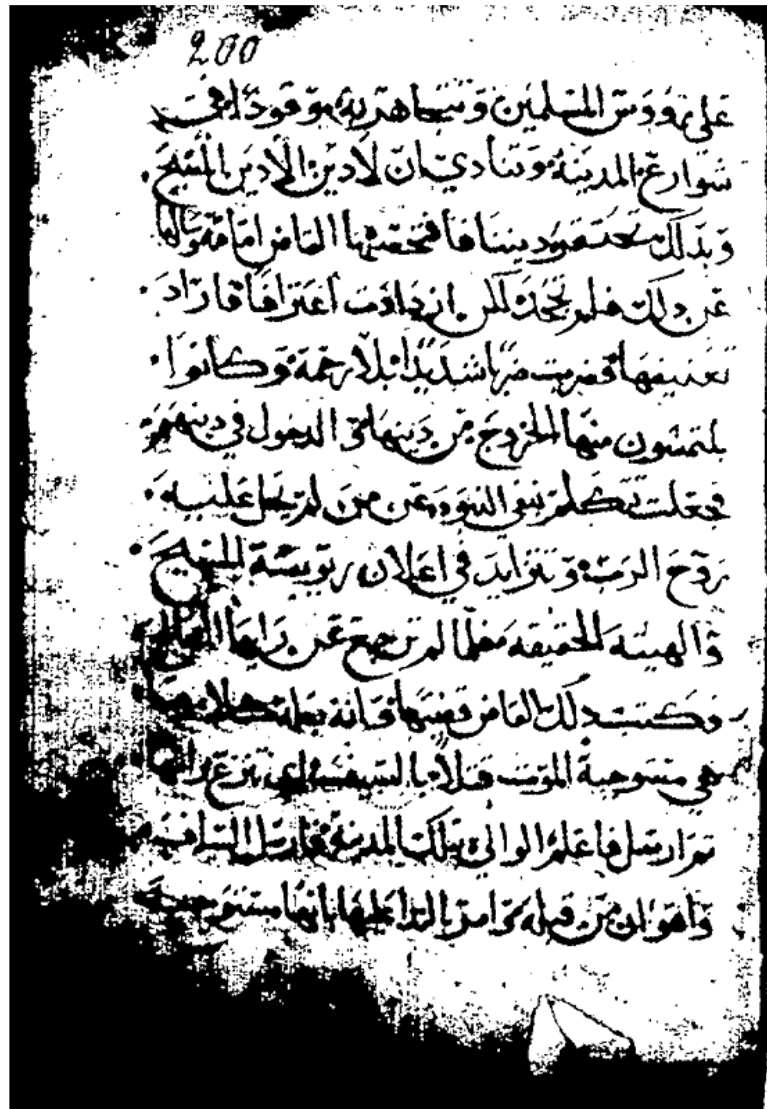 200
على روس المسلمين وتتجاهر به موقودًا في
شوارع المدينة وتنادي ان لا دين الا دين المسيح
وبذلك دينها القاضي امامه وسالها
عن ذلك فلم تجحد لكن ازدادت اعترافًا فاراد
تعنيفها فضربت ضربًا شديدًا بلا رحمة وكانوا
يلتمسون منها الخروج من دينها والدخول في دينهم
فجعلت تتكلم بنفي النبوه عن من لم يحل عليه
روح الرب وتتزايد في اعلان ربوبية المسيح
والهيته الحقيقه فلما لم ترجع عن رايها
وكتب ذلك القاضي قصتها
هي مستوجبة الموت قتلاً بالسيف اي تنزع راسها
ثم ارسل فاعلم الوالي بتلك المدينة فارسل
من قبله امر بالندا عليها بانها مستوجبة